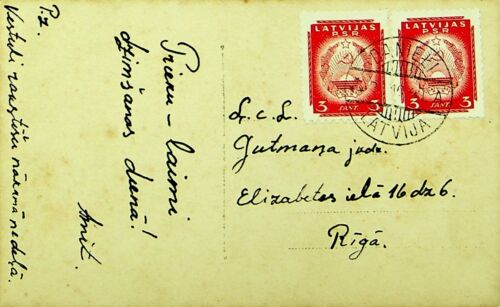 P.z.
Vēstuli rakstīšu nākamā nedēļā.
Prieku - laimi
dzimšanas dienā!
Anit.
LATVIJAS
PSR
3 SANT. 3
LATVIJAS
PSR
3 SANT. 3
LATVIJA
L. c. L.
Gutmaņa jadz.
Elizabetes ielā 16 dz 6.
Rīgā.